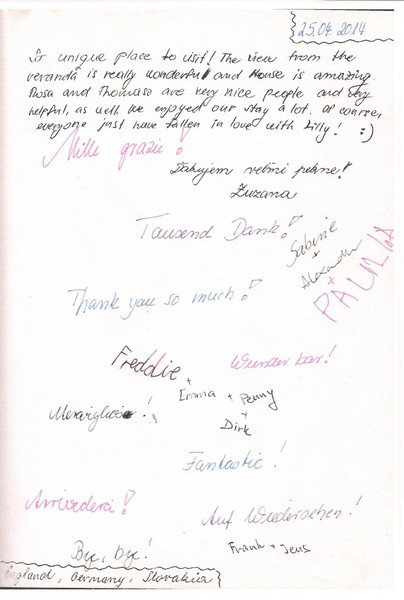 25.04.2014
A unique place to visit! The view from the
veranda is really wonderful and House is amazing.
Rosa and Thomaso are very nice people and very
helpful, as well. We enjoyed our stay a lot. Of course,
everyone just have fallen in love with Lilly! :)
Mille grazie!
Ďakujem veľmi pekne!
Zuzana
Tausend Dank!
Sabine
+
Alexander
+
PAULINA
Thank you so much!
Freddie
Wunderbar!
+
Emma + Penny
+
Dirk
Meraviglioso!
Fantastic!
Arriverderci!
Auf Wiedersehen!
Bye, bye!
Frank + Jens
England, Germany, Slovakia